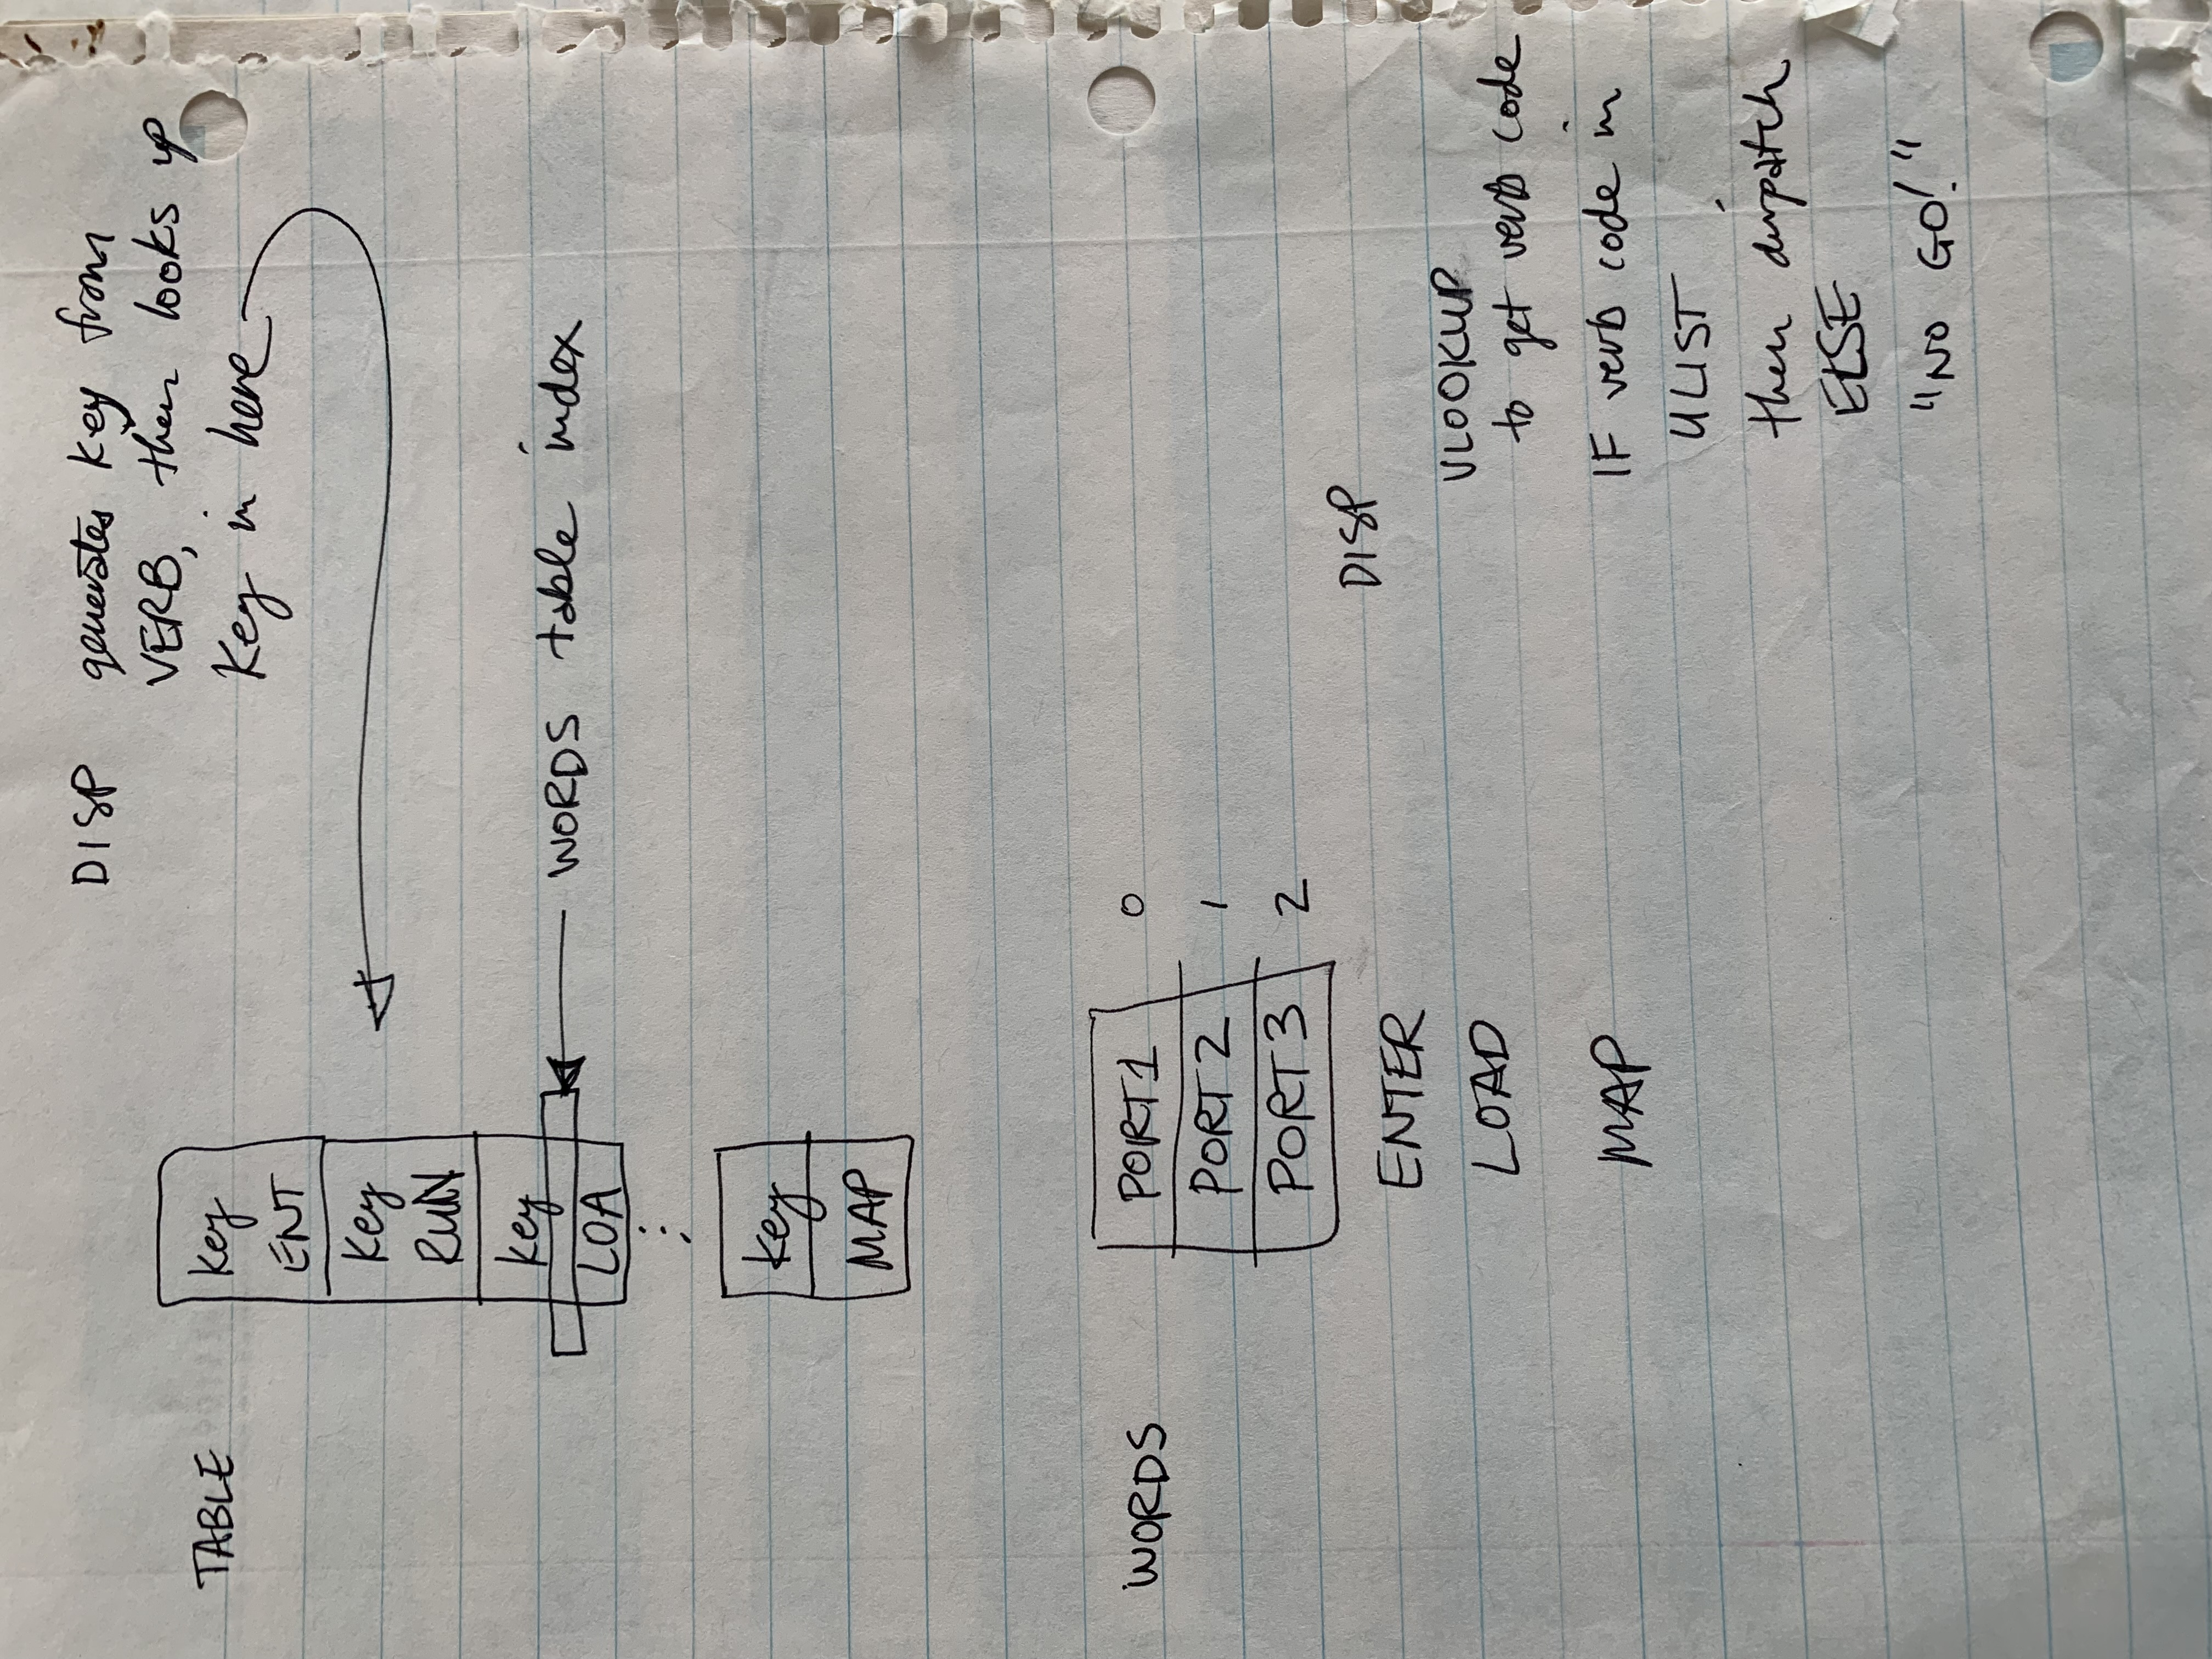 DISP generates key from
VERB, then looks up
key in here
TABLE
key
ENT
key
RUN
key
WORDS table index
LOA
key
MAP
WORDS
PORT1 0
PORT2 1
PORT3 2
ENTER
LOAD
MAP
DISP
VLOOKUP
to get verb code
IF verb code in
VLIST
then dispatch
ELSE
"NO GO!"